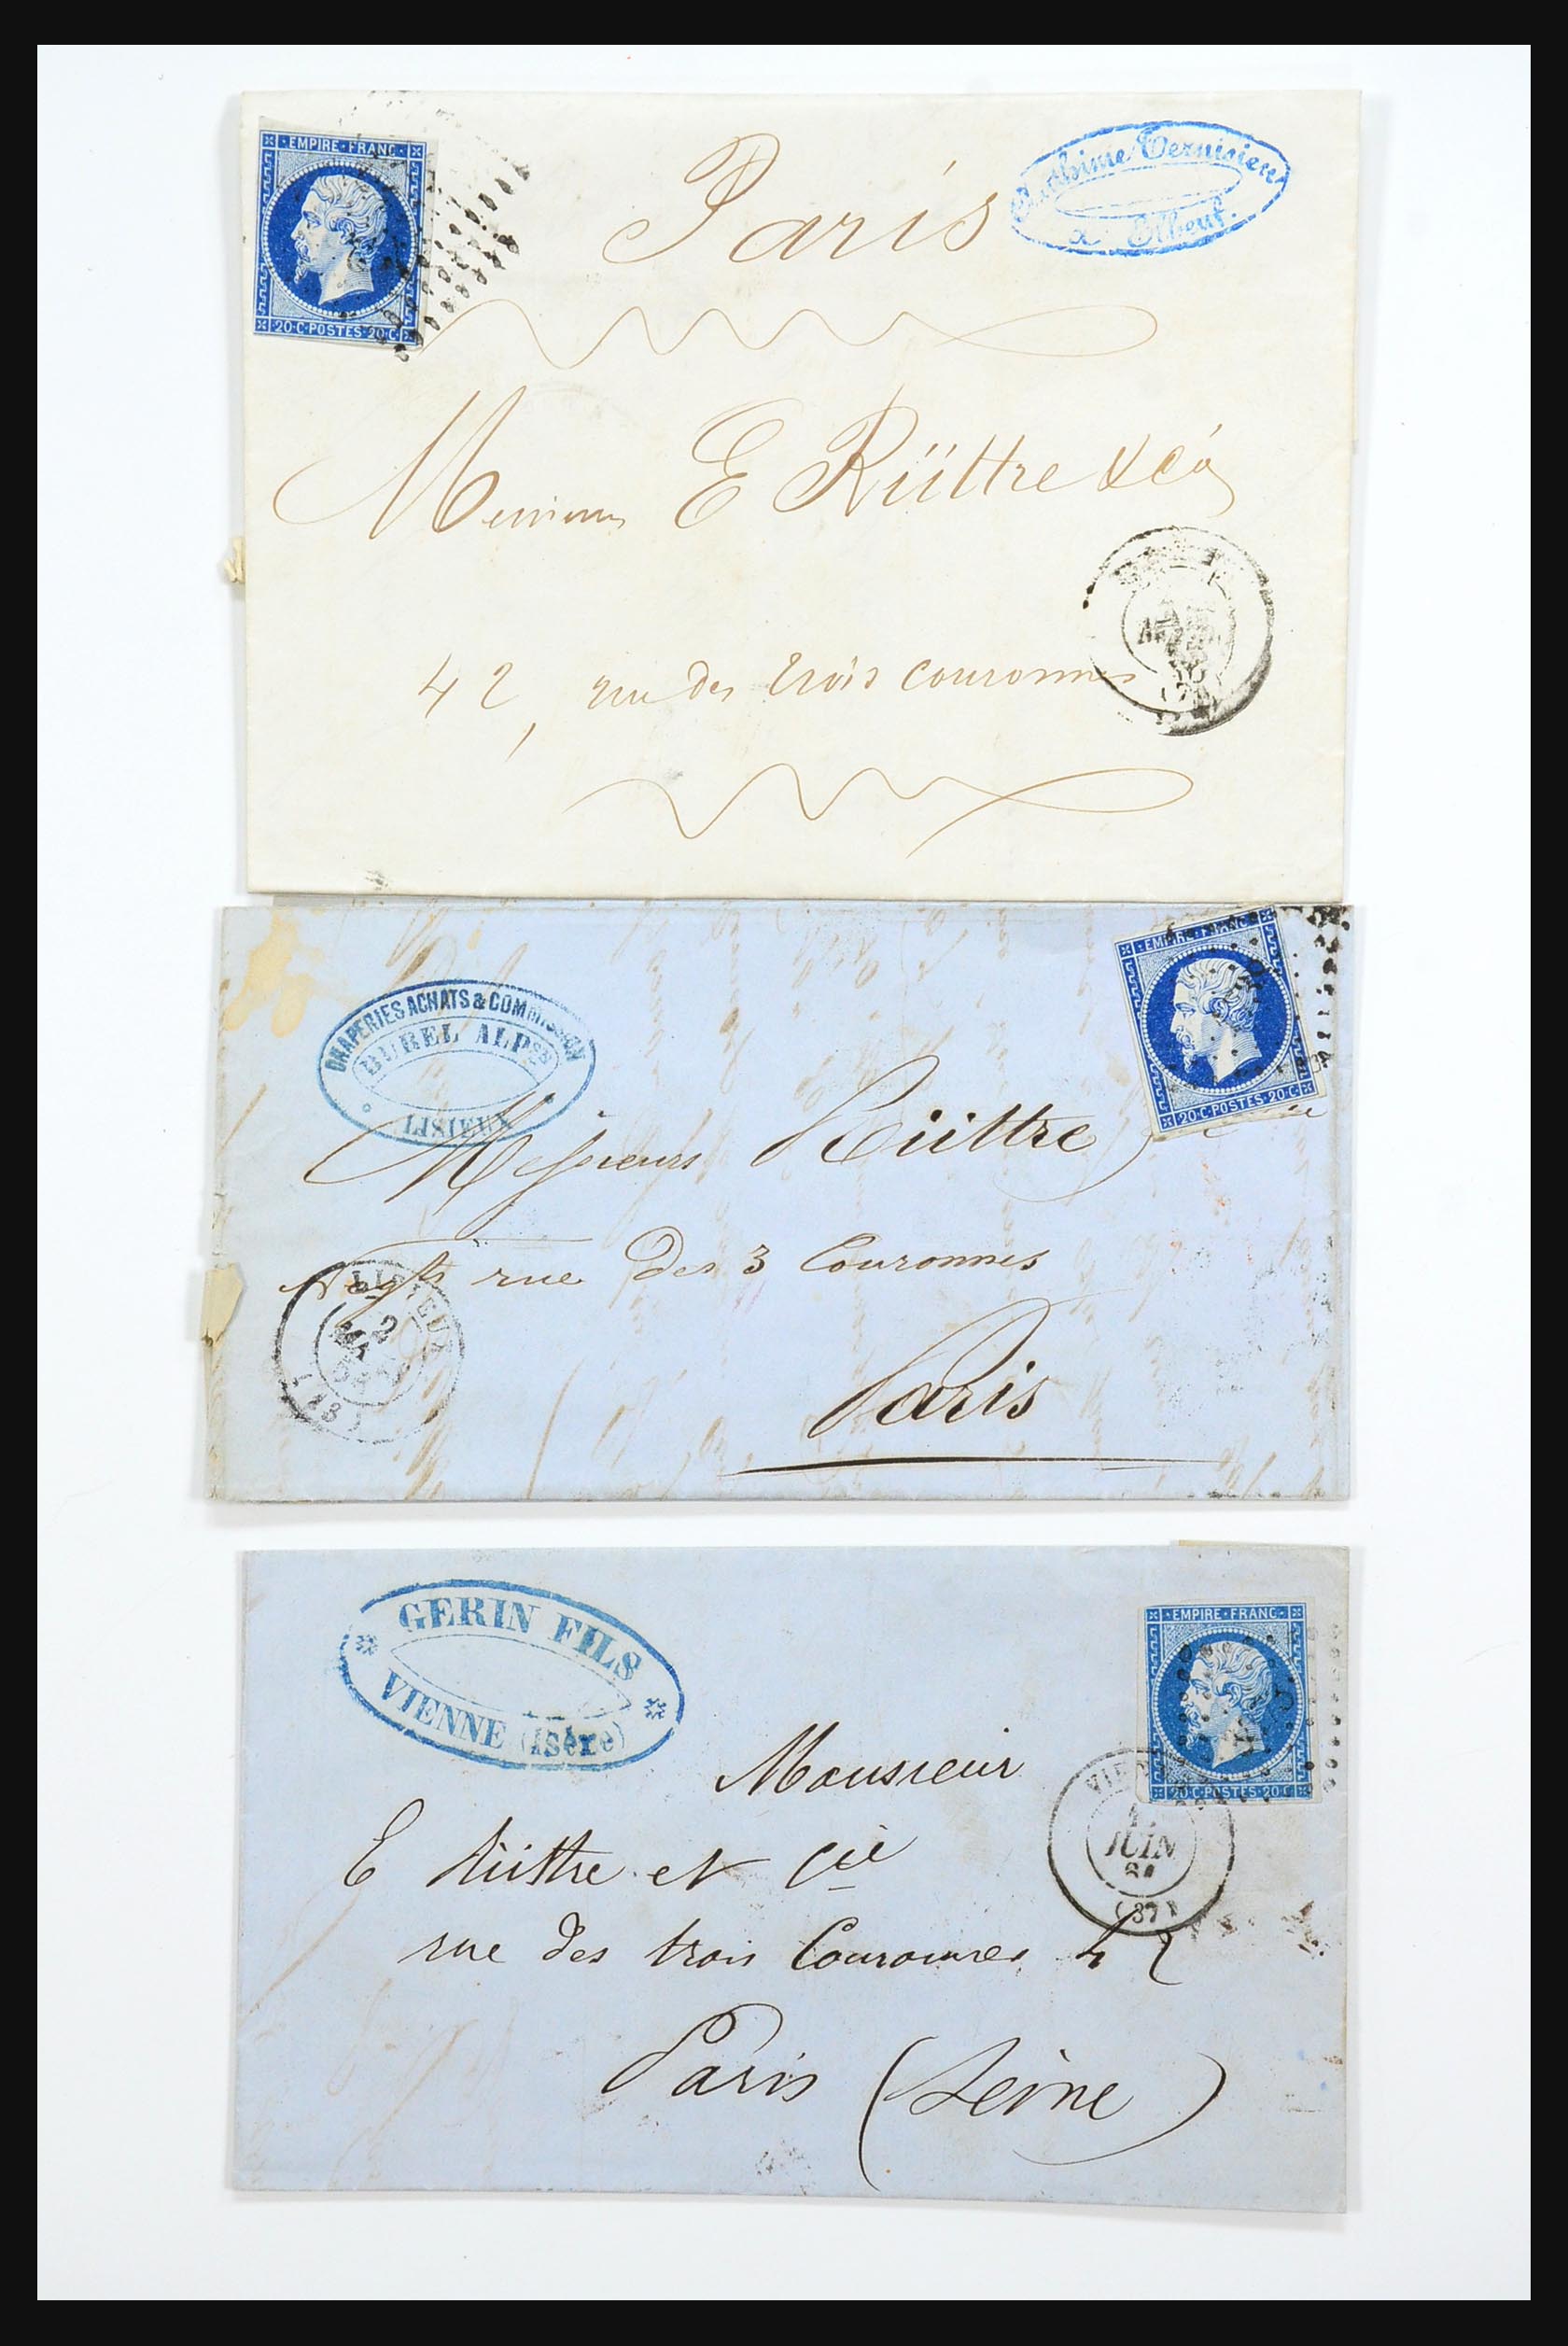 EMPIRE FRANC
20 C POSTES 20 C
Paris
à Elbeuf.
Messieurs E Rüttre & Cie
42, rue des trois couronnes
(74)
DRAPERIES ACHATS & COMMISSION
BUREL ALPse
LISIEUX
EMPIRE FRANC
20 C POSTES 20 C
Messieurs Rüttre
Negts rue des 3 Couronnes
LISIEUX
2
(13)
Paris
GERIN FILS
VIENNE (Isère)
EMPIRE FRANC
20 C POSTES 20 C
Monsieur
E Rüttre et Cie
JUIN
(37)
rue des trois Couronnes 42
Paris (Seine)